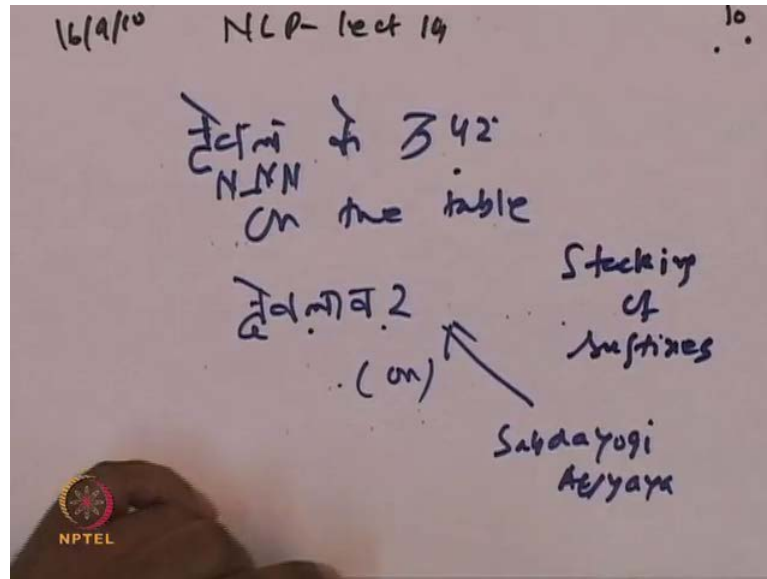 16/9/10 NLP- lect 19
टेबल के ऊपर
N_NN
on the table
टेबलावर
(on)
Stacking
of
suffixes
Sabdayogi
Avyaya
NPTEL